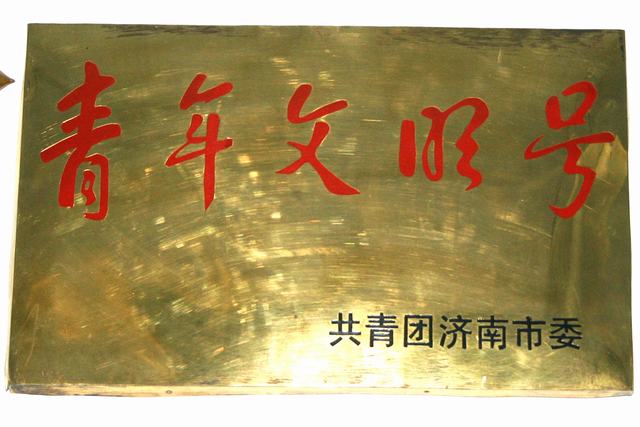 青年文明号
共青团济南市委